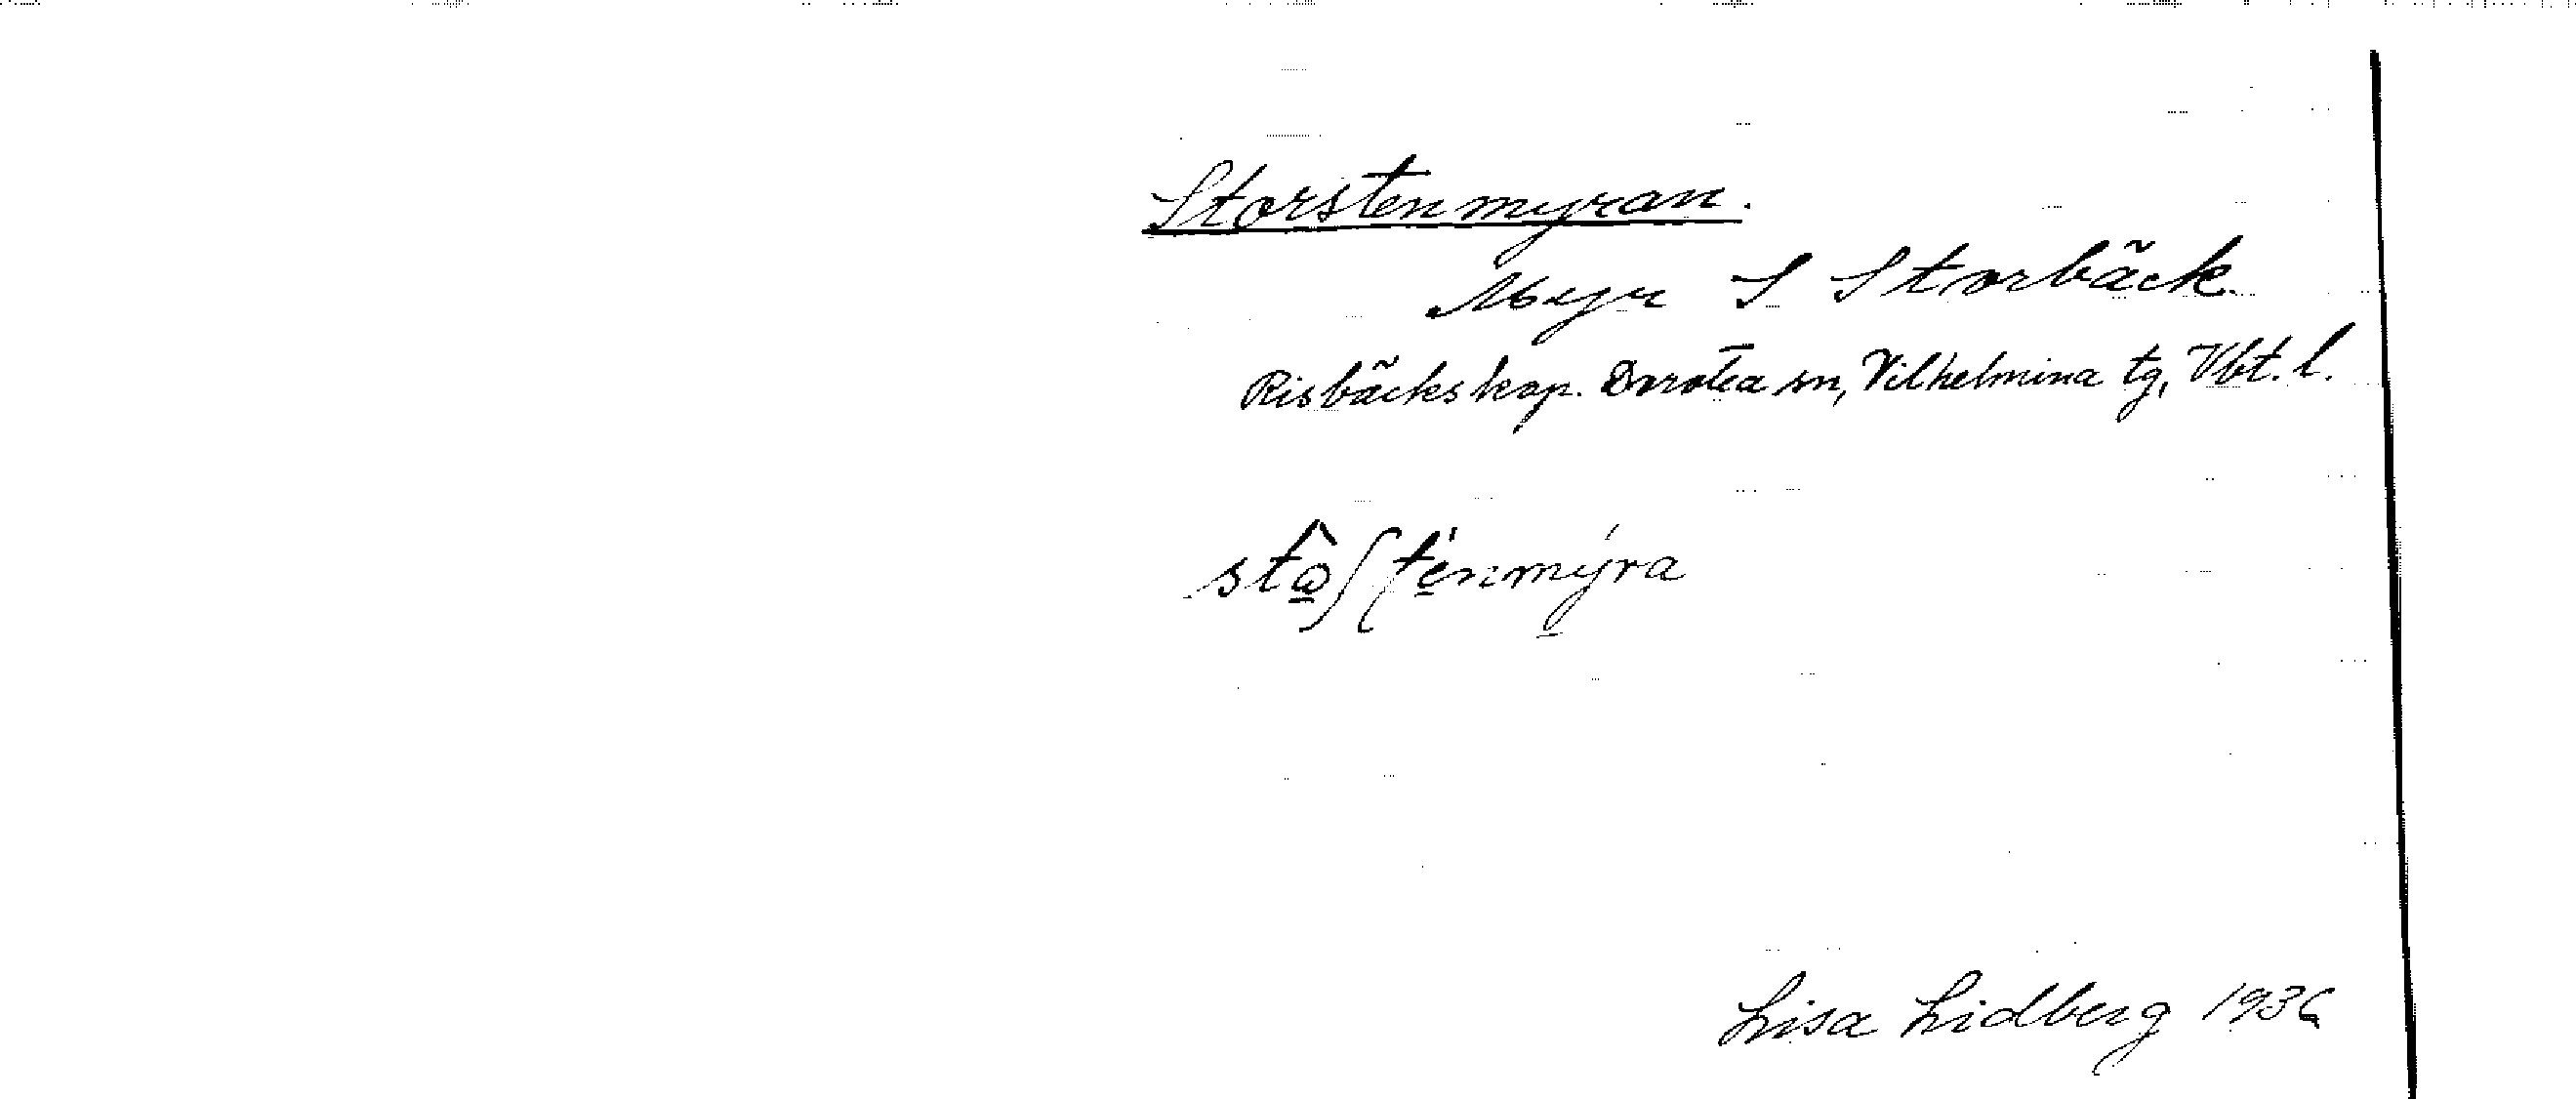 Storstenmyran.
Myr S Storbäck
Risbäcks kap. Dorotea sn, Vilhelmina tg, Vbt. l.
Lisa Lidberg 1936